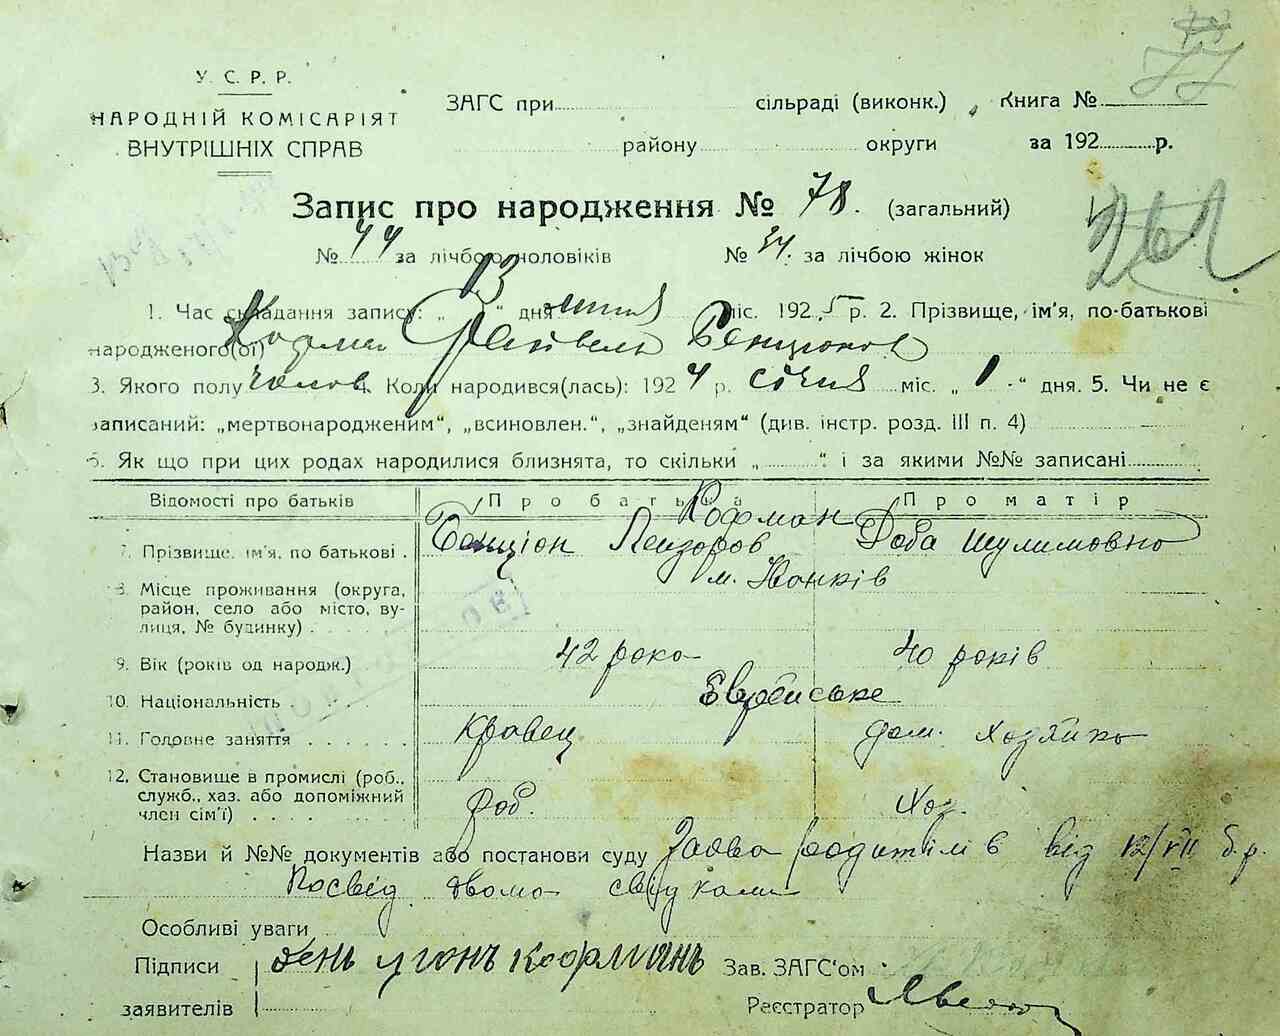 У. С. Р. Р.
НАРОДНІЙ КОМІСАРІЯТ
ВНУТРІШНІХ СПРАВ
ЗАГС при сільраді (виконк.) Книга №
району округи за 192 р.
Запис про народження № 78. (загальний)
№ 44 за лічбою чоловіків № 34. за лічбою жінок
1. Час складання запису: „ 13 “ дня липня міс. 192 5 р. 2. Прізвище, ім'я, по-батькові
народженого(ої) Кофман Файвель Бенціонов
3. Якого полу чолов. 4. Коли народився(лась): 192 4 р. січня міс. „ 1 “ дня. 5. Чи не є
записаний: „мертвонародженим“, „всиновлен.“, „знайденям“ (див. інстр. розд. III п. 4)
6. Як що при цих родах народилися близнята, то скільки „ “ і за якими №№ записані
Відомості про батьків Про батька Про матір
Кофман
7. Прізвище, ім'я, по батькові . Бенціон Лейзоров Доба Шулимовна
8. Місце проживання (округа, м. Іванків
район, село або місто, ву-
лиця, № будинку) . . . . . .
9. Вік (років од народж.) 42 рока 40 років
10. Національність . . . . . Еврейське
11. Головне заняття . . . . . . Кравец дом. хозяйка
12. Становище в промислі (роб.,
служб., хаз. або допоміжний роб. Хоз.
член сім'ї) . . . . . . . .
Назви й №№ документів або постанови суду Заява родителів від 12/VII б.р.
Посвід двома свідками
Особливі уваги
Підписи Бень ционъ Кофманъ Зав. ЗАГС'ом
заявителів Реєстратор